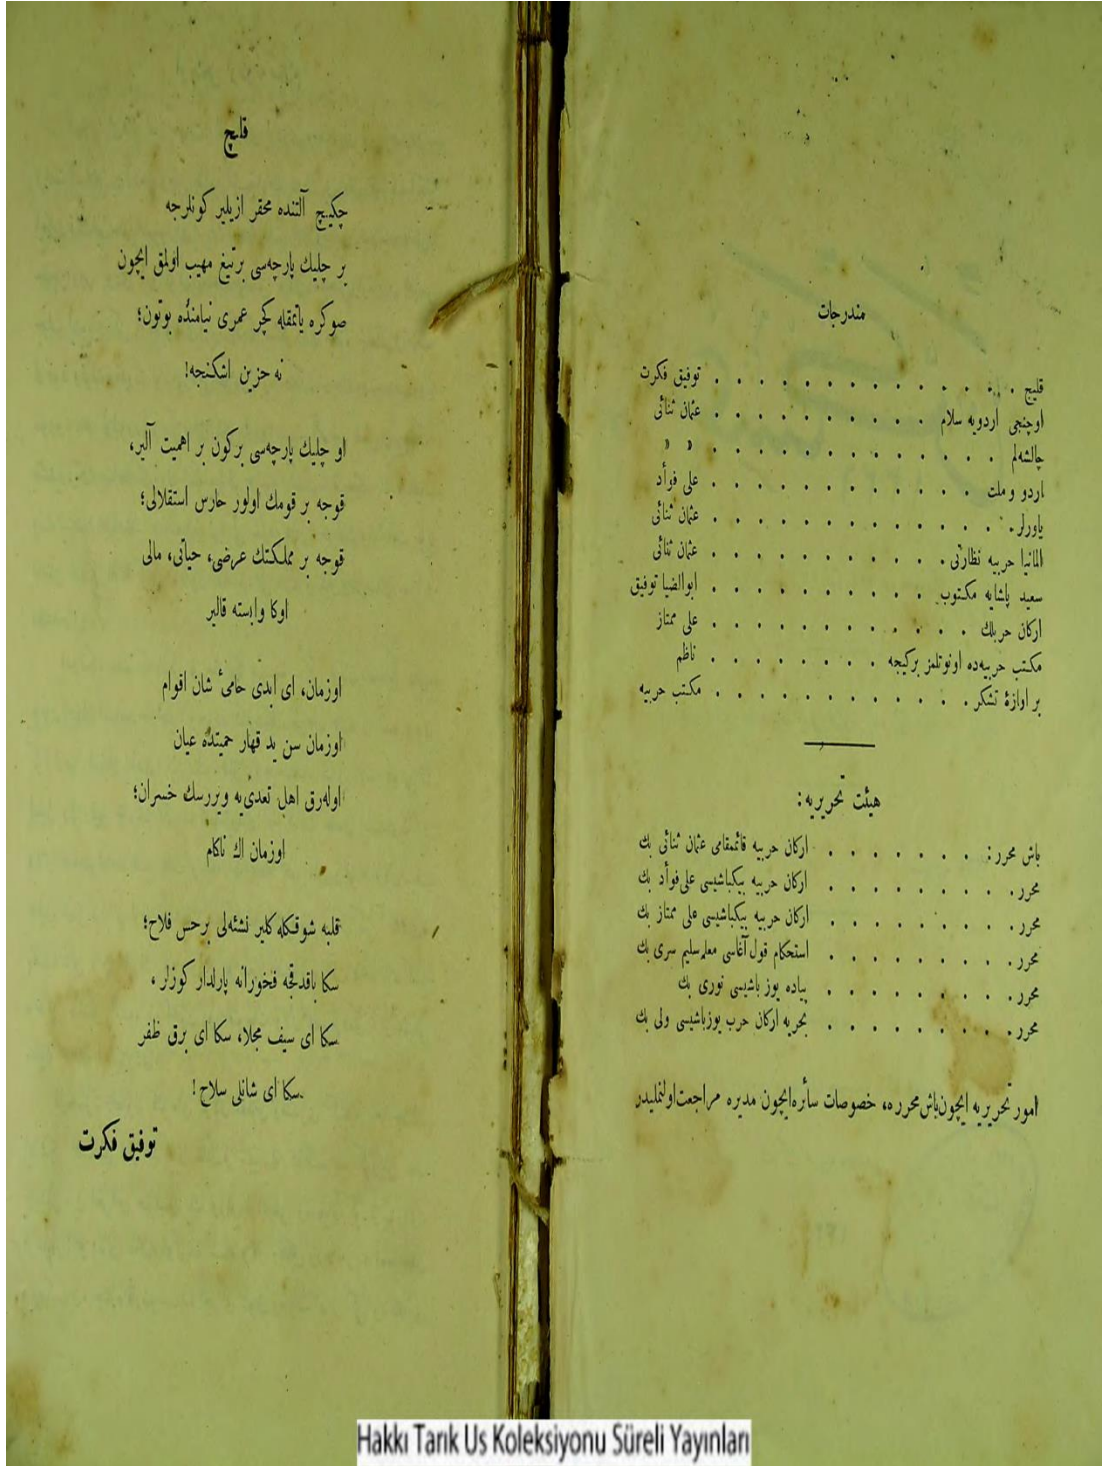 مندرجات
قلیج . . . . . . . . . . . . . . توفیق فکرت
اوچنجی اردویه سلام . . . . . . . . . . عثمان ثنائی
چالشه‌لم . . . . . . . . . . . . . » »
اردو وملت . . . . . . . . . . . . علی فوأد
یاورلر . . . . . . . . . . . . . . عثمان ثنائی
المانیا حربیه نظارتی . . . . . . . . . . . عثمان ثنائی
سعید پاشایه مکتوب . . . . . . . . . . ابوالضیا توفیق
ارکان حربلك . . . . . . . . . . . . علی ممتاز
مکتب حربیه‌ده اونوتلمز برکیجه . . . . . . . . ناظم
بر اوازهٔ تشکر . . . . . . . . . . . . مکتب حربیه
هیئت تحریریه :
باش محرر : . . . . . . . ارکان حربیه قائمقامی عثمان ثنائی بك
محرر . . . . . . . . . ارکان حربیه بیکباشیسی علی فوأد بك
محرر . . . . . . . . . ارکان حربیه بیکباشیسی علی ممتاز بك
محرر . . . . . . . . . استحکام قول آغاسی معلم سلیم سری بك
محرر . . . . . . . . . پیاده یوز باشیسی نوری بك
محرر . . . . . . . . . بحریه ارکان حرب یوزباشیسی ولی بك
امور تحریریه ایچون باش محرره، خصوصات سائره ایچون مدیره مراجعت اولنملیدر
قلیچ
چکیچ آلتنده محقر ازیلیر کونلرجه
بر چلیك پارچه‌سی برتیغ مهیب اولمق ایچون
صوکره یاتمقله کچر عمری نیامنده بوتون؛
نه حزین اشکنجه!
او چلیك پارچه‌سی برکون بر اهمیت آلیر،
قوجه بر قومك اولور حارس استقلالی؛
قوجه بر مملکتك عرضی، حیاتی، مالی
اوکا وابسته قالیر
اوزمان، ای ابدی حامیٔ شان اقوام
اوزمان سن ید قهار حمیتده عیان
اوله‌رق اهل تعدی‌یه ویررسك خسران؛
اوزمان اك ناکام
قلبه شوقکله کلیر نشئه‌لی برحس فلاح؛
سکا باقدقجه فخورانه پارلدار کوزلر ،
سکا ای سیف مجلا، سکا ای برق ظفر
سکا ای شانلی سلاح !
توفیق فکرت
Hakkı Tarık Us Koleksiyonu Süreli Yayınları